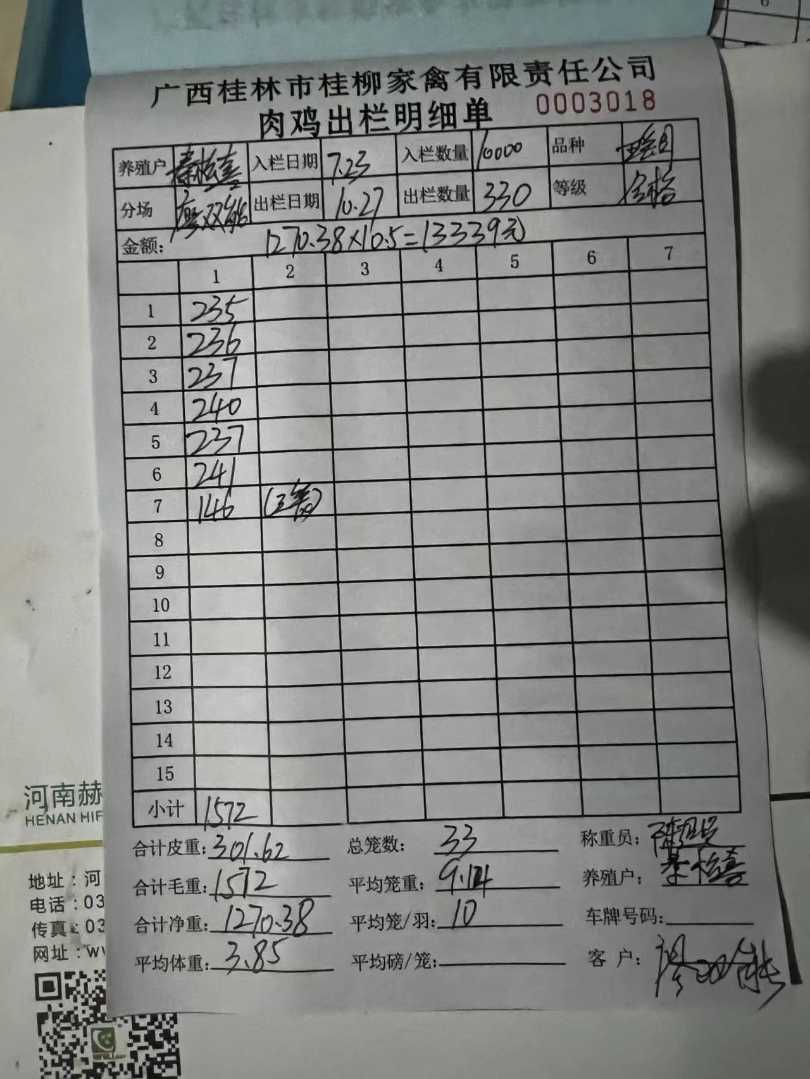 广西桂林市桂柳家禽有限责任公司
肉鸡出栏明细单 0003018
养殖户 入栏日期 7.23 入栏数量 10000 品种
分场 出栏日期 10.27 出栏数量 330 等级
金额: 1270.38×10.5=13339元
1 2 3 4 5 6 7
1 235
2 236
3 237
4 240
5 237
6 241
7 146
8
9
10
11
12
13
14
15
小计 1572
合计皮重: 301.62 总笼数: 33 称重员:
合计毛重: 1572 平均笼重: 9.14 养殖户:
合计净重: 1270.38 平均笼/羽: 10 车牌号码:
平均体重: 3.85 平均磅/笼: 客户:
河南赫
HENAN HIF
地址:河
电话:03
传真:03
网址:ww